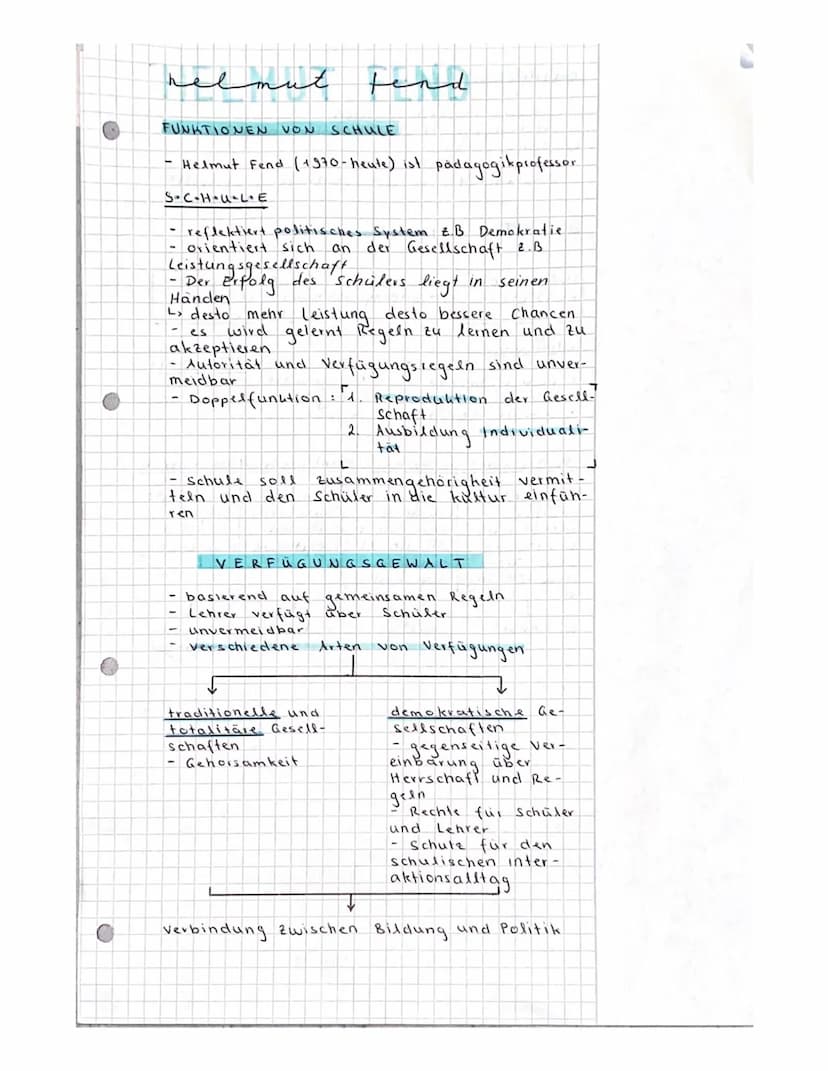 Helmut Fend
FUNKTIONEN VON SCHULE
- Helmut Fend (1970-heute) ist pädagogikprofessor
S•C•H•U•L•E
- reflektiert politisches System z.B Demokratie
- orientiert sich an der Gesellschaft z.B
Leistungsgesellschaft
- Der Erfolg des Schülers liegt in seinen
Händen
↳ desto mehr Leistung desto bessere Chancen
- es wird gelernt Regeln zu lernen und zu
akzeptieren
- Autorität und Verfügungsregeln sind unver-
meidbar
- Doppelfunktion : 1. Reproduktion der Gesell-
schaft
2. Ausbildung Individuali-
tät
- Schule soll zusammengehörigkeit vermit-
teln und den Schüler in die kultur einfüh-
ren
VERFÜGUNGSGEWALT
- basierend auf gemeinsamen Regeln
- Lehrer verfügt über Schüler
- unvermeidbar
- verschiedene Arten von Verfügungen
traditionelle und
totalitäre Gesell-
schaften
- Gehorsamkeit
demokratische Ge-
sellschaften
- gegenseitige Ver-
einbarung über
Herrschaft und Re-
geln
- Rechte für Schüler
und Lehrer
- Schutz für den
schulischen inter-
aktionsalltag
Verbindung zwischen Bildung und Politik